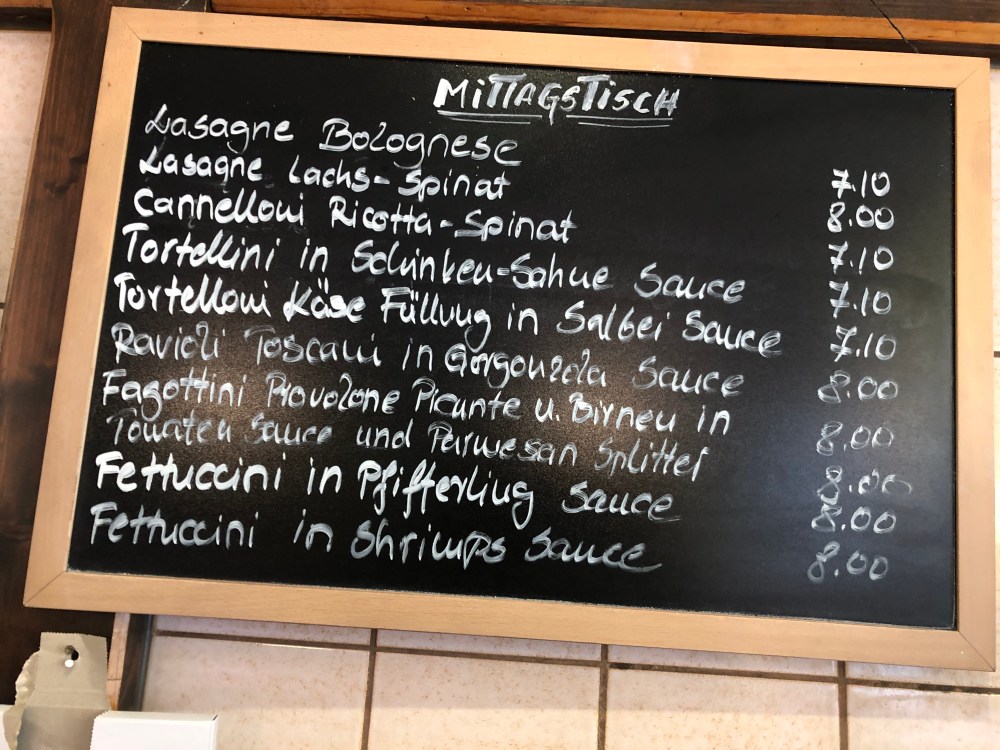 MiTTAGSTiSCH
Lasagne Bolognese 7.10
Lasagne Lachs-Spinat 8.00
Cannelloni Ricotta-Spinat 7.10
Tortellini in Schinken-Sahne Sauce 7.10
Tortelloni Käse Füllung in Salbei Sauce 7.10
Ravioli Toscani in Gorgonzola Sauce 8.00
Fagottini Provolone Picante u. Birnen in 8.00
Tomaten Sauce und Parmesan Splitter 8.00
Fettuccini in Pfifferling Sauce 8.00
Fettuccini in Shrimps Sauce 8.00